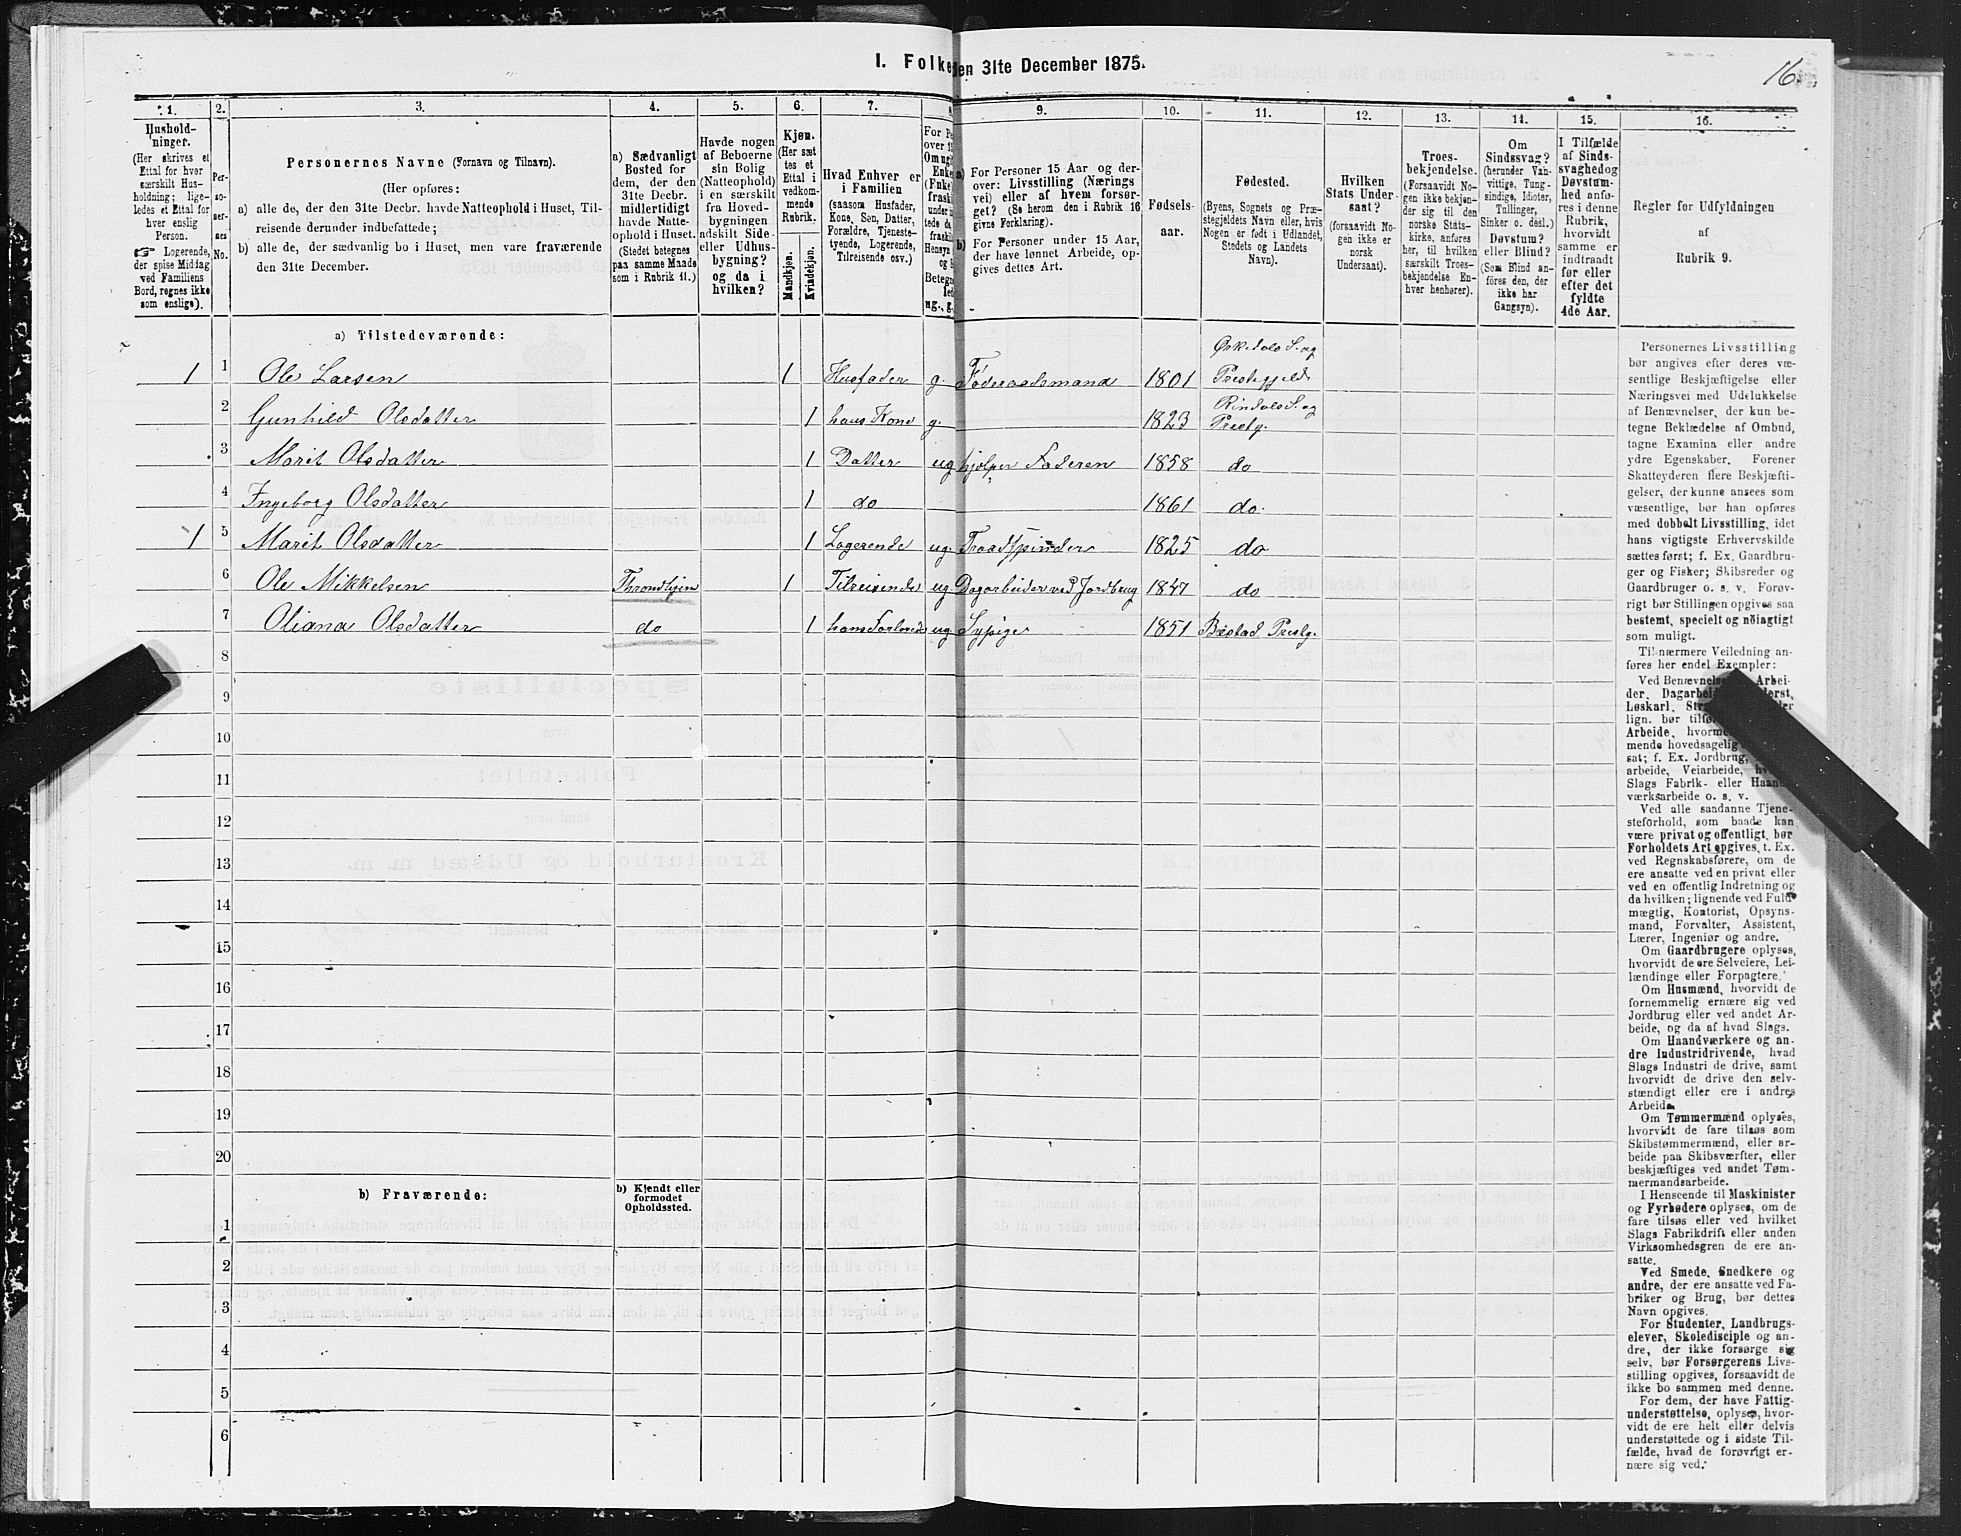 I. Folke
den 31te December 1875.
16
1.
2.
3.
4.
5.
6.
7.
9.
10.
11.
12.
13.
14.
15.
16.
Hushold-
ninger.
(Her skrives et
Ettal for hver
særskilt Hus-
holdning; lige-
ledes et Ettal for
hver enslig
Person.
☞ Logerende,
der spise Middag
ved Familiens
Bord, regnes ikke
som enslige).
Per-
so-
ner-
nes
No.
Personernes Navne (Fornavn og Tilnavn).
(Her opføres:
a) alle de, der den 31te Decbr. havde Natteophold i Huset, Til-
reisende derunder indbefattede;
b) alle de, der sædvanlig bo i Huset, men vare fraværende
den 31te December.
a) Sædvanligt
Bosted for
dem, der den
31te Decbr.
midlertidigt
havde Natte-
ophold i Huset.
(Stedet betegnes
paa samme Maade
som i Rubrik 11.)
Havde nogen
af Beboerne
sin Bolig
(Natteophold)
i en særskilt
fra Hoved-
bygningen
adskilt Side-
eller Udhus-
bygning?
og da i
hvilken?
Kjøn.
(Her sæt
tes et
Ettal i
vedkom-
mende
Rubrik.
Mandkjøn.
Kvindekjøn.
Hvad Enhver er
i Familien
(saasom Husfader,
Kone, Søn, Datter,
Forældre, Tjeneste-
tyende, Logerende,
Tilreisende osv.)
For Pe
over 1
Om ug
Enke
(Enke
frask
under
tede
frask
Hensyn
og
Betegn
led
ug., g.
a) For Personer 15 Aar og der-
over: Livsstilling (Nærings
vei) eller af hvem forsør-
get? (Se herom den i Rubrik 16
givne Forklaring).
b) For Personer under 15 Aar,
der have lønnet Arbeide, op-
gives dettes Art.
Fødsels-
aar.
Fødested.
(Byens, Sognets og Præ-
stegjeldets Navn eller, hvis
Nogen er født i Udlandet,
Stedets og Landets
Navn).
Hvilken
Stats Under-
saat?
(forsaavidt No-
gen ikke er
norsk
Undersaat).
Troes-
bekjendelse.
(Forsaavidt No-
gen ikke bekjen-
der sig til den
norske Stats-
kirke, anføres
her, til hvilken
særskilt Troes-
bekjendelse En-
hver henhører).
Om
Sindssvag?
(herunder Van-
vittige, Tung-
sindige, Idioter,
Tullinger,
Sinker o. desl.)
Døvstum?
eller Blind?
(Som Blind an-
føres den, der
ikke har
Gangsyn).
I Tilfælde
af Sinds-
svaghed og
Døvstum-
hed anfø-
res i denne
Rubrik,
hvorvidt
samme er
indtraadt
før eller
efter det
fyldte
4de Aar.
Regler for Udfyldningen
af
Rubrik 9.
a) Tilstedeværende:
1 1 Ole Larsen 1 Husfader g. Føderaadsmand 1801 Ørkedals S. og Prestegjeld
2 Gunhild Olsdatter 1 hans Kone g. 1823 Rindals S. og Prestg.
3 Marit Olsdatter 1 Datter ug hjelper Faderen 1858 do
4 Ingeborg Olsdatter 1 do 1861 do.
1 5 Marit Olsdatter 1 Logerende ug. Traadspinder 1825 do
6 Ole Mikkelsen Throndhjem 1 Tilreisende ug Dagarbeider ved Jordbrug 1847 do
7 Oliana Olsdatter do 1 hans Forlovede ug Sypige 1851 Bæstad Prestg.
8
9
10
11
12
13
14
15
16
17
18
19
20
b) Fraværende:
b) Kjendt eller
formodet
Opholdssted.
1
2
3
4
5
6
Personernes Livsstilling
bør angives efter deres væ-
sentlige Beskjæftigelse eller
Næringsvei med Udelukkelse
af Benævnelser, der kun be-
tegne Beklædelse af Ombud,
tagne Examina eller andre
ydre Egenskaber. Forener
Skatteyderen flere Beskjæfti-
gelser, der kunne ansees som
væsentlige, bør han opføres
med dobbelt Livsstilling, idet
hans vigtigste Erhvervskilde
sættes først; f. Ex. Gaardbru-
ger og Fisker; Skibsreder og
Gaardbruger o. s. v. Forøv-
rigt bør Stillingen opgives saa
bestemt, specielt og nøiagtigt
som muligt.
Til nærmere Veiledning an-
føres her endel Exempler:
Ved Benævnelse Arbei-
der, Dagarbei derst,
Løskarl, Str ler
lign. bør tilfø
Arbeide, hvorme
mende hovedsagelig
sat; f. Ex. Jordbrug,
arbeide, Veiarbeide, hv
Slags Fabrik- eller Haand-
værksarbeide o. s. v.
Ved alle saadanne Tjene-
steforhold, som baade kan
være privat og offentligt, bør
Forholdets Art opgives, t. Ex.
ved Regnskabsførere, om de
ere ansatte ved en privat eller
ved en offentlig Indretning og
da hvilken; lignende ved Fuld-
mægtig, Kontorist, Opsyns-
mand, Forvalter, Assistent,
Lærer, Ingeniør og andre.
Om Gaardbrugere oplyses,
hvorvidt de ere Selveiere, Lei-
lændinge eller Forpagtere.
Om Husmænd, hvorvidt de
fornemmelig ernære sig ved
Jordbrug eller ved andet Ar-
beide, og da af hvad Slags.
Om Haandværkere og an-
dre Industridrivende, hvad
Slags Industri de drive, samt
hvorvidt de drive den selv-
stændigt eller ere i andres
Arbeide.
Om Tømmermænd oplyses,
hvorvidt de fare tilsøs som
Skibstømmermænd, eller ar-
beide paa Skibsværfter, eller
beskjæftiges ved andet Tøm-
mermandsarbeide.
I Henseende til Maskinister
og Fyrbødere oplyses, om de
fare tilsøs eller ved hvilket
Slags Fabrikdrift eller anden
Virksomhedsgren de ere an-
satte.
Ved Smede, Snedkere og
andre, der ere ansatte ved Fa-
briker og Brug, bør dettes
Navn opgives.
For Studenter, Landbrugs-
elever, Skoledisciple og an-
dre, der ikke forsørge sig
selv, bør Forsørgerens Livs-
stilling opgives, forsaavidt de
ikke bo sammen med denne.
For dem, der have Fattig-
understøttelse, oplyses, hvor-
vidt de ere helt eller delvis
understøttede og i sidste Til-
fælde, hvad de forøvrigt er-
nære sig ved.